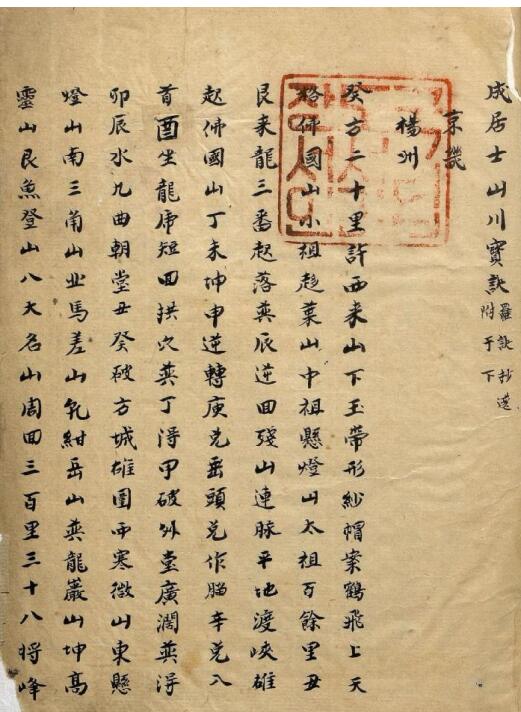 成居士山川寶訣 羅訣抄選
附于下
京機
楊洲
癸方二十里許西来山下玉帶形紗帽案鶴飛上天
格佛國山小祖趍葉山中祖懸燈山太祖百餘里丑
艮来龍三番起落巽辰逆回殘山連脉平地渡峽雄
起佛國山丁未坤申逆轉庚兌垂頭兌作腦辛兌入
首酉坐龍虎短回拱穴巽丁淂甲破外堂廣濶巽淂
卯辰水九曲朝堂丑癸破方城雄圍而寒微山東懸
燈山南三角山北馬差山乹紺岳山巽龍巖山坤高
靈山艮魚登山八大名山周回三百里三十八将峰
장서인